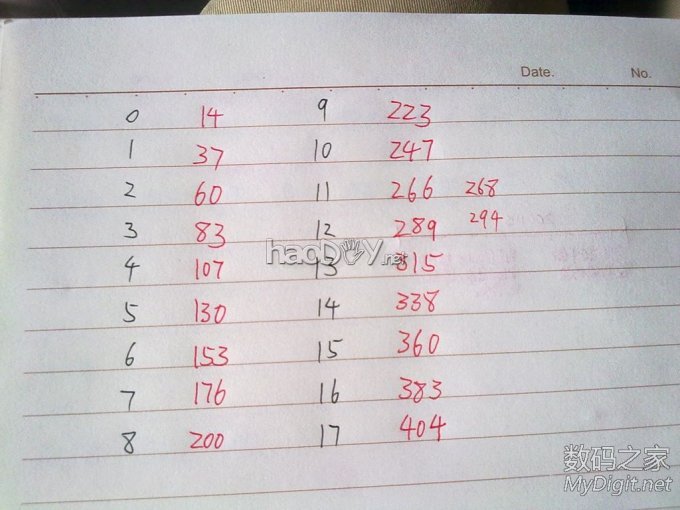 Date. No.
0 14 9 223
1 37 10 247
2 60 11 266 268
3 83 12 289 294
haoDIY.net
4 107 13 315
5 130 14 338
6 153 15 360
7 176 16 383
8 200 17 404
数码之家
MyDigit.net